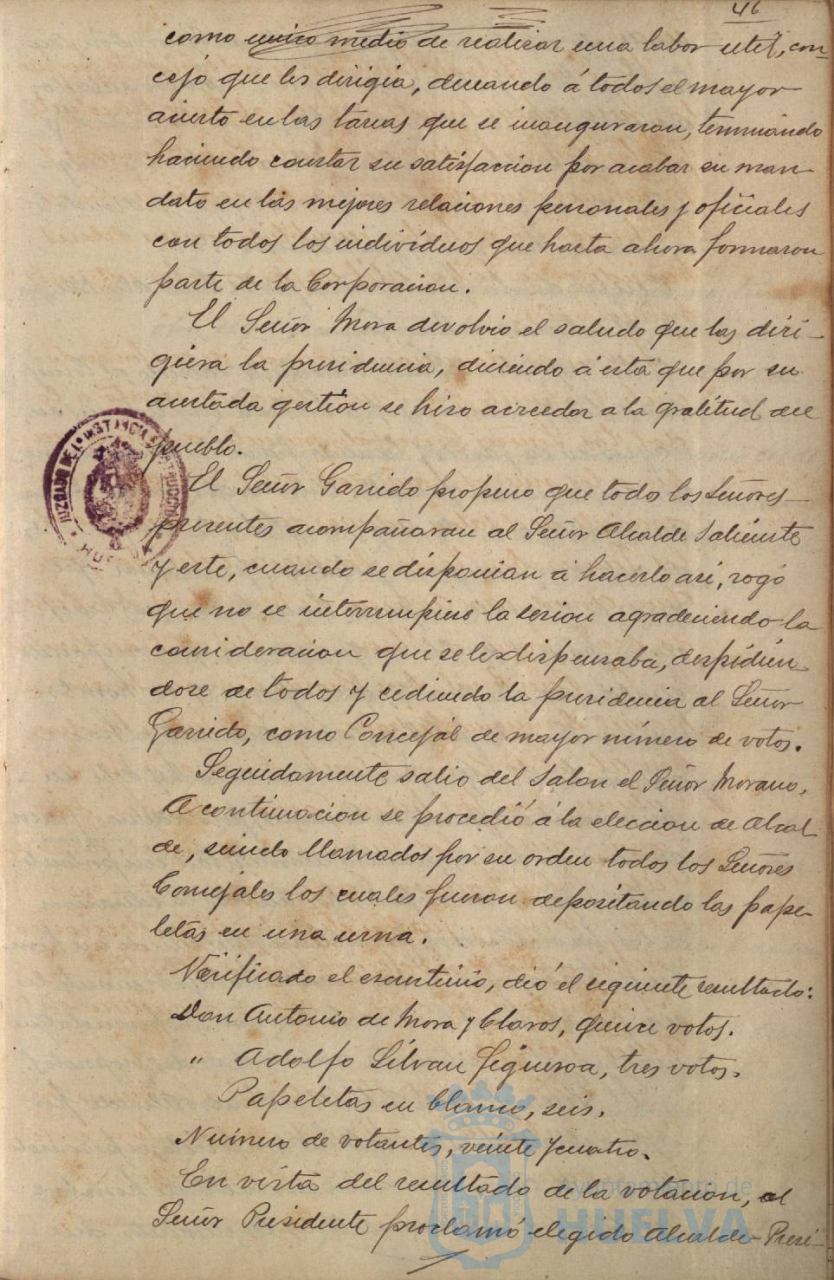 46
como unico medio de realizar una labor util, con-
cejo que les dirigia, deseando á todos el mayor
acierto en las tareas que se inauguraran, terminando
haciendo constar su satisfaccion por acabar su man-
dato en las mejores relaciones personales y oficiales
con todos los individuos que hasta ahora formaron
parte de la Corporacion.
El Señor Mora devolvio el saludo que les diri-
giera la presidencia, diciendo á esta que por su
acertada gestion se hizo acreedor a la gratitud del
pueblo.
El Señor Garrido propuso que todo los Señores
presentes acompañaran al Señor Alcalde Saliente
y este, cuando se disponian á hacerlo asi, rogó
que no se interrumpiese la sesion agradeciendo la
consideracion que se les dispensaba, despidien-
dose de todos y cediendo la presidencia al Señor
Garrido, como Concejál de mayor número de votos.
Seguidamente salio del Salon el Señor Morano.
A continuacion se procedió á la eleccion de Alcal
de, siendo llamados por su orden todos los Señores
Concejales los cuales fueron depositando las pape-
letas en una urna.
Verificado el escrutinio, dió el siguiente resultado:
Don Antonio de Mora y Claros, quince votos.
" Adolfo Silvan Figueroa, tres votos.
Papeletas en blanco, seis.
Número de votantes, veinte y cuatro.
En vista del resultado de la votacion, el
Señor Presidente proclamó elegido Alcalde-Presi-
JUZGADO DE 1ª INSTANCIA
Ayuntamiento de
HUELVA